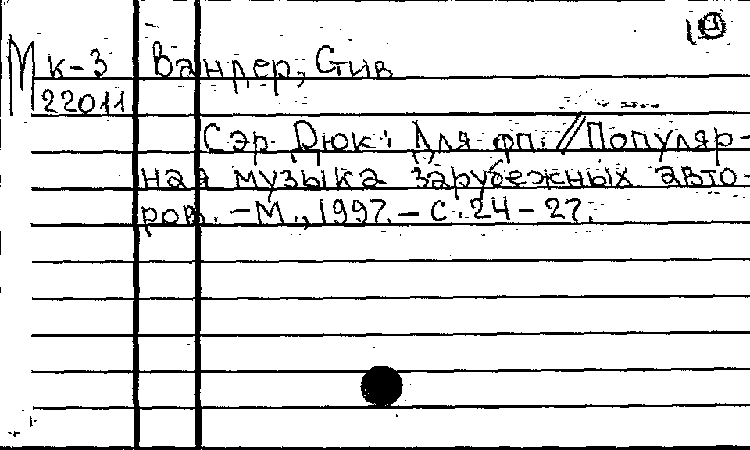 Мк-3 Вандер, Стив
22011
Сэр Дюк: Для фп. // Популяр-
ная музыка зарубежных авто-
ров. - М., 1997. - С. 24 - 27.